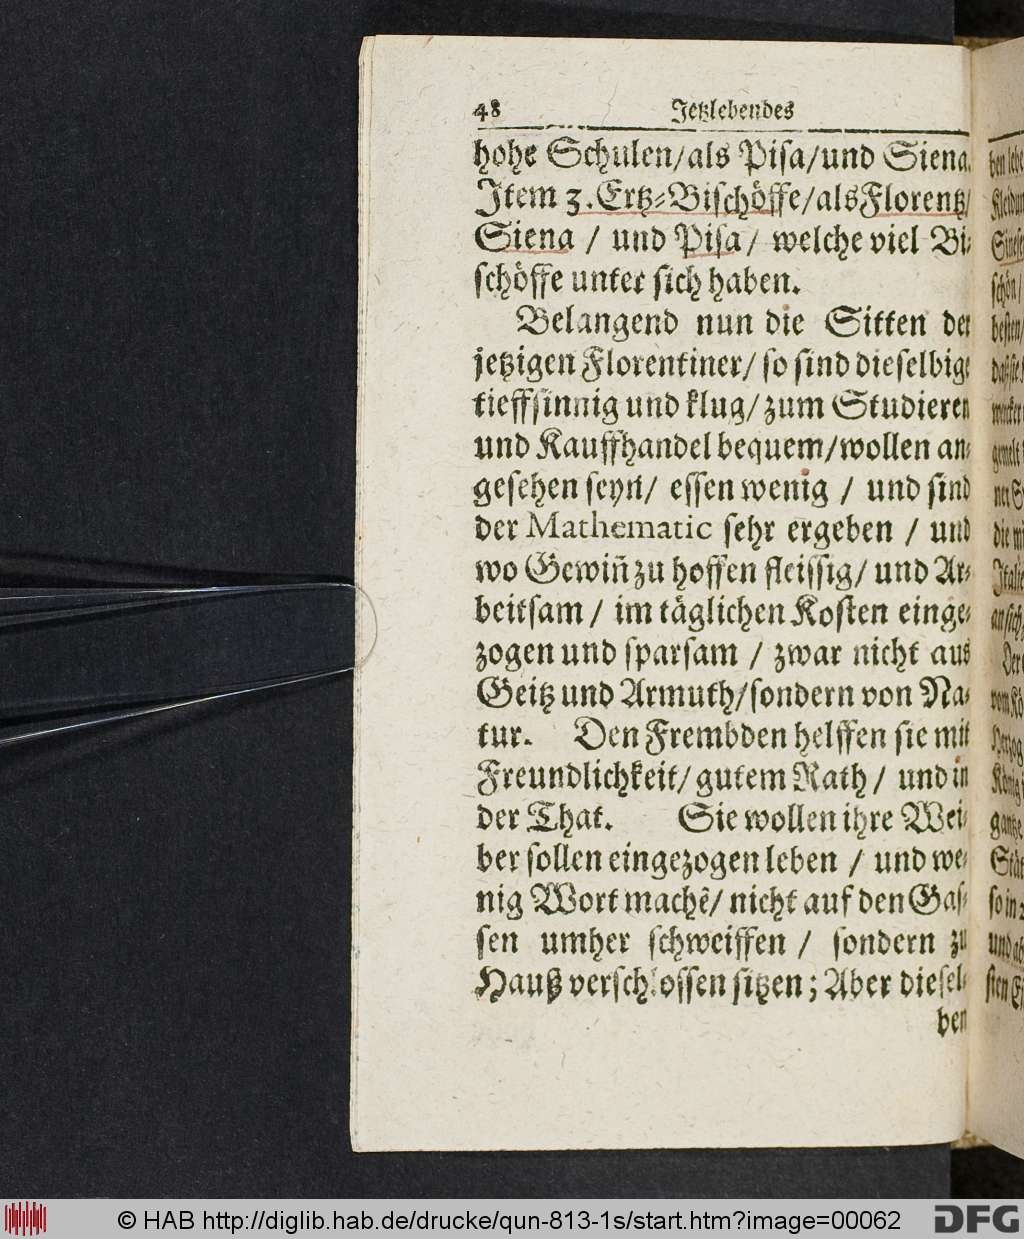 48 Jetzlebendes
hohe Schulen/als Pisa/und Siena.
Item 3. Ertz-Bischöffe/als Florentz/
Siena / und Pisa / welche viel Bi-
schöffe unter sich haben.
Belangend nun die Sitten der
jetzigen Florentiner/ so sind dieselbige
tieffsinnig und klug/ zum Studieren
und Kauffhandel bequem/wollen an-
gesehen seyn/ essen wenig / und sind
der Mathematic sehr ergeben / und
wo Gewiñ zu hoffen fleissig/ und Ar-
beitsam / im täglichen Kosten einge-
zogen und sparsam / zwar nicht aus
Geitz und Armuth/sondern von Na-
tur. Den Frembden helffen sie mit
Freundlichkeit/ gutem Rath / und in
der That. Sie wollen ihre Wei-
ber sollen eingezogen leben / und we-
nig Wort machẽ/ nicht auf den Gas-
sen umher schweiffen / sondern zu
Hauß verschlossen sitzen; Aber diesel-
ben
© HAB http://diglib.hab.de/drucke/qun-813-1s/start.htm?image=00062
DFG